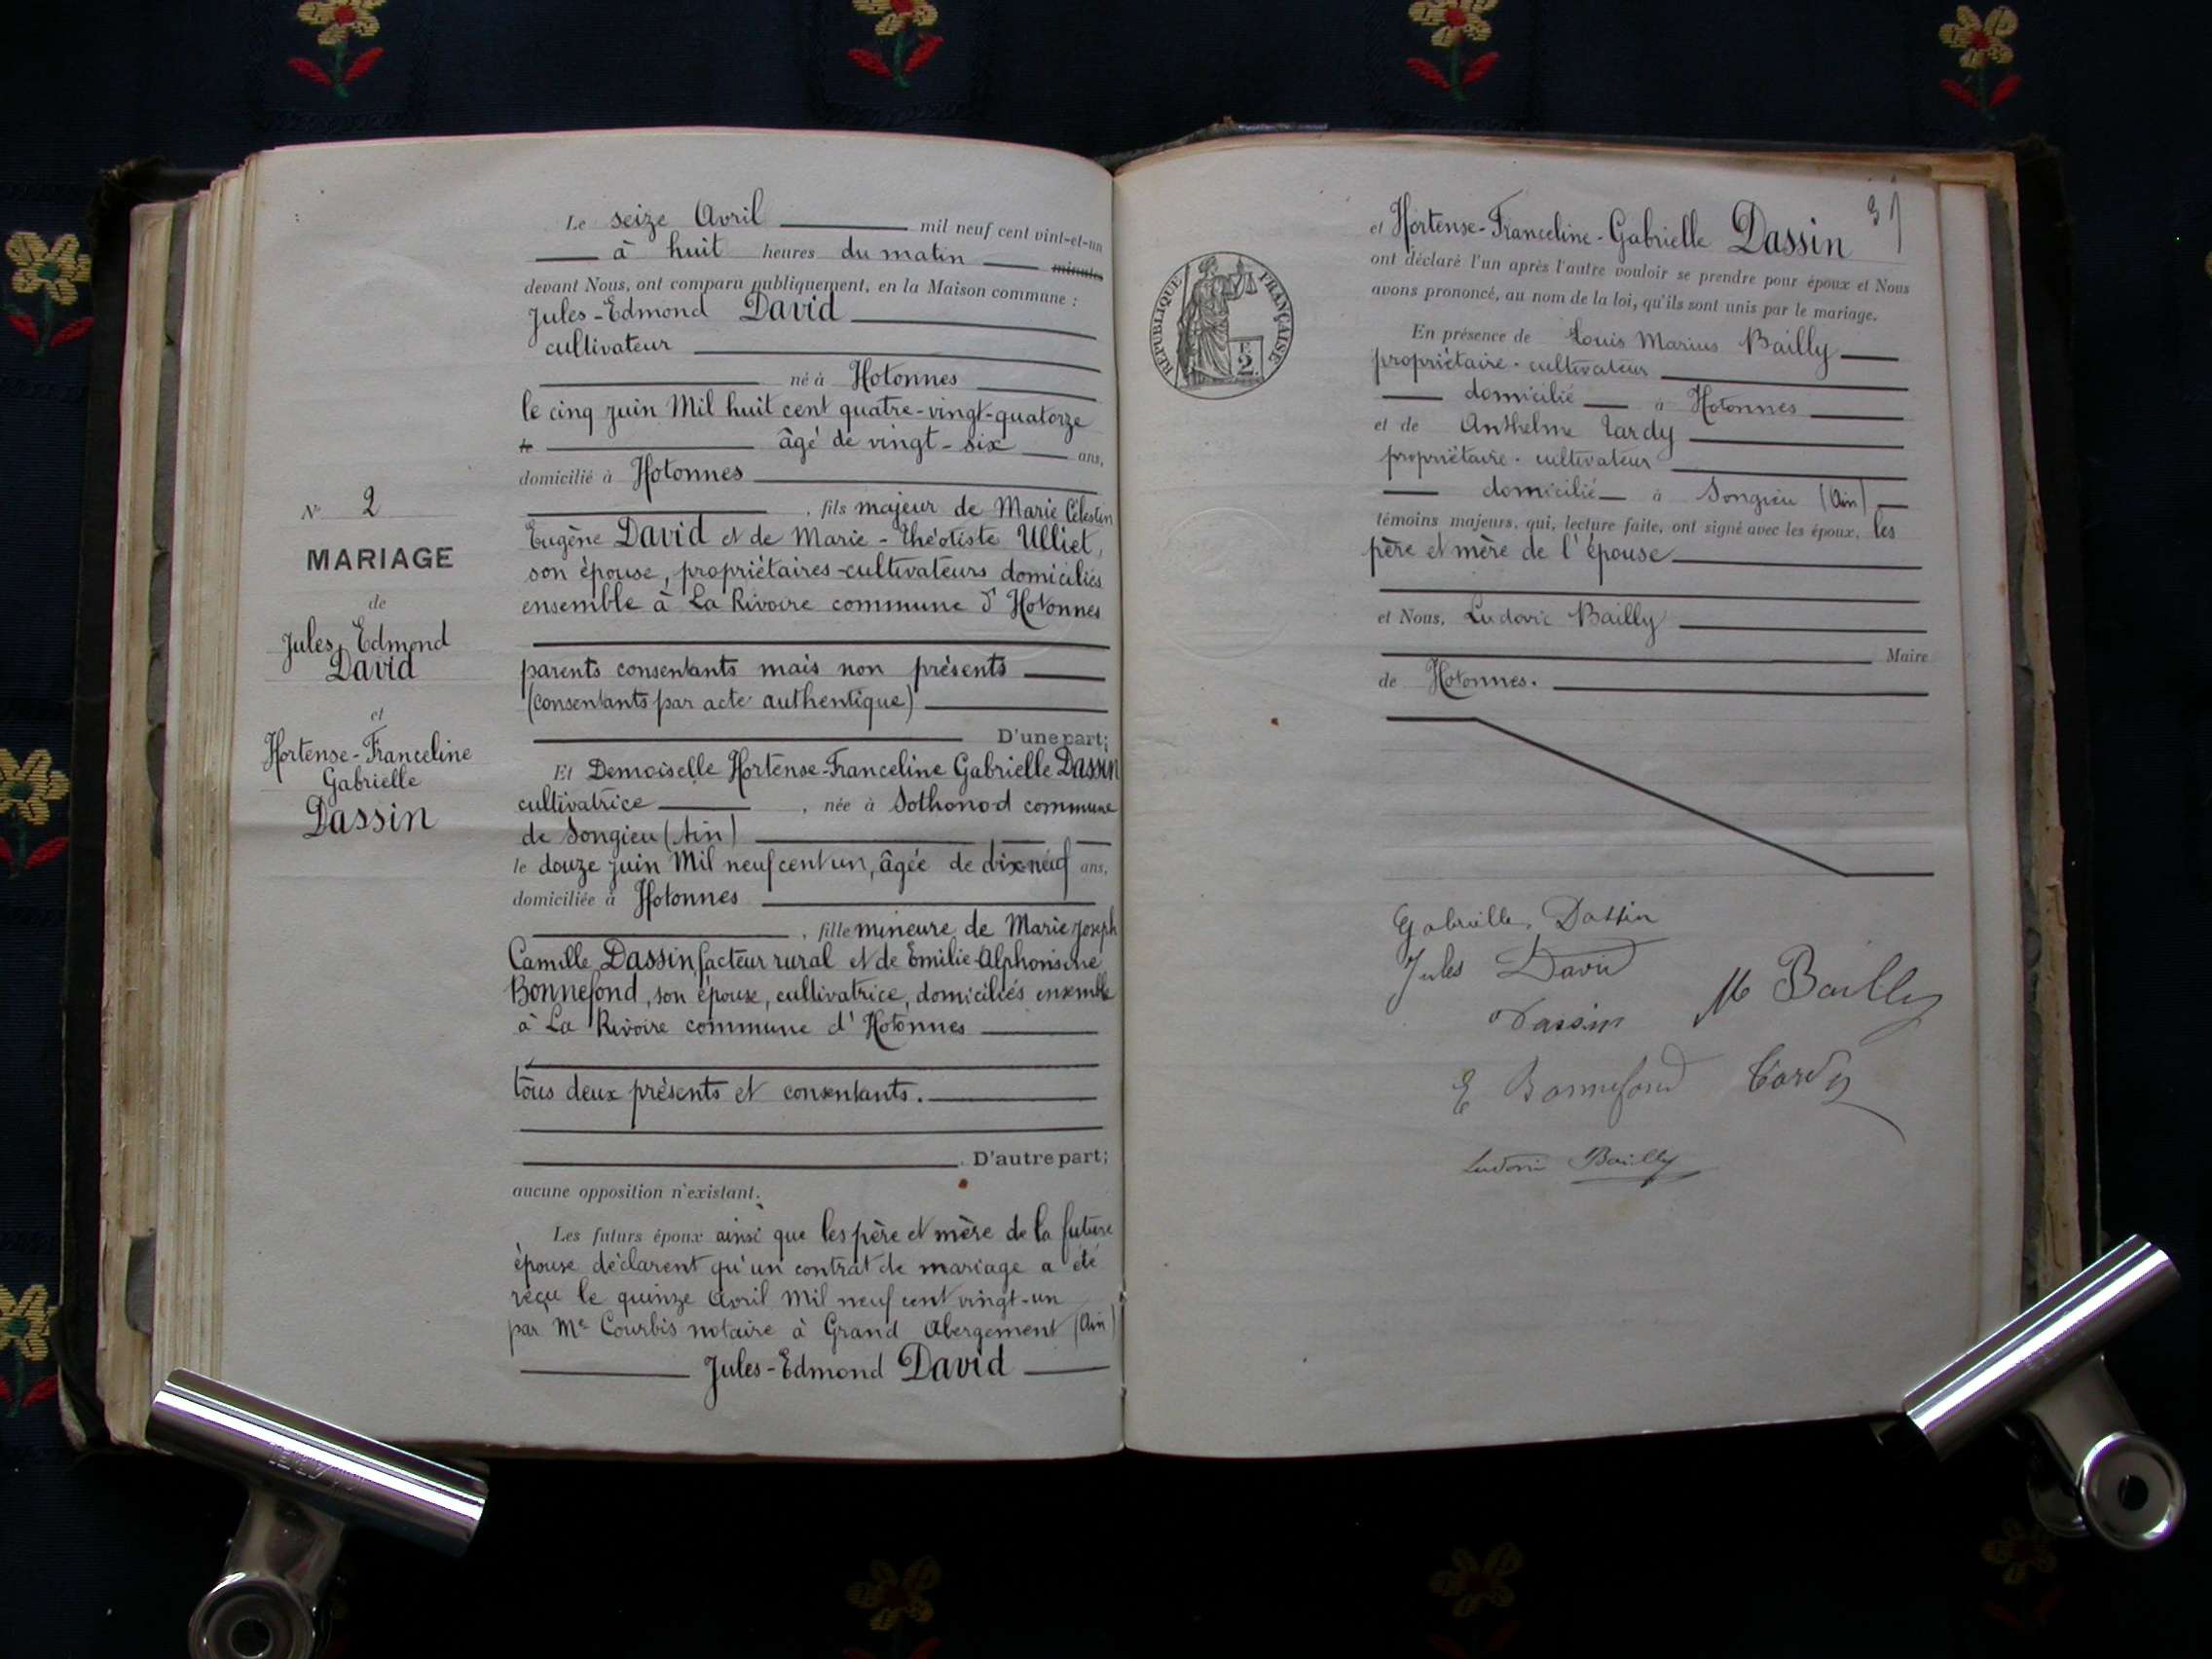 Le seize Avril mil neuf cent vint-et-un
à huit heures du matin minutes
devant Nous, ont comparu publiquement, en la Maison commune :
Jules-Edmond David
cultivateur
né à Hotonnes
le cinq juin Mil huit cent quatre-vingt-quatorze
le âgé de vingt-six ans,
domicilié à Hotonnes
, fils majeur de Marie Célestin
Eugène David et de Marie-Théotiste Ulliet,
son épouse, propriétaires-cultivateurs domiciliés
ensemble à La Rivoire commune d'Hotonnes
parents consentants mais non présents
(consentants par acte authentique)
D'une part;
Et Demoiselle Hortense-Franceline Gabrielle Dassin
cultivatrice , née à Sothonod commune
de Songieu (Ain)
le douze juin Mil neuf cent un, âgée de dix-neuf ans,
domiciliée à Hotonnes
, fille mineure de Marie Joseph
Camille Dassin, facteur rural et de Emilie-Alphonsine
Bonnefond, son épouse, cultivatrice, domiciliés ensemble
à La Rivoire commune d'Hotonnes
tous deux présents et consentants.
D'autre part;
aucune opposition n'existant.
Les futurs époux ainsi que les père et mère de la future
épouse déclarent qu'un contrat de mariage a été
reçu le quinze Avril Mil neuf cent vingt-un
par Me Courbis notaire à Grand Abergement (Ain)
Jules-Edmond David
N° 2
MARIAGE
de
Jules, Edmond
David
et
Hortense-Franceline
Gabrielle
Dassin
31
et Hortense-Franceline-Gabrielle Dassin
ont déclaré l'un après l'autre vouloir se prendre pour époux et Nous
avons prononcé, au nom de la loi, qu'ils sont unis par le mariage.
En présence de Louis Marius Bailly
propriétaire-cultivateur
domicilié à Hotonnes
et de Anthelme Tardy
propriétaire-cultivateur
domicilié à Songieu (Ain)
témoins majeurs, qui, lecture faite, ont signé avec les époux, les
père et mère de l'épouse
et Nous, Ludovic Bailly
Maire
de Hotonnes.
RÉPUBLIQUE FRANÇAISE
2
Gabrielle Dassin
Jules David
Dassin
M Bailly
E Bonnefond
Tardy
Ludovic Bailly